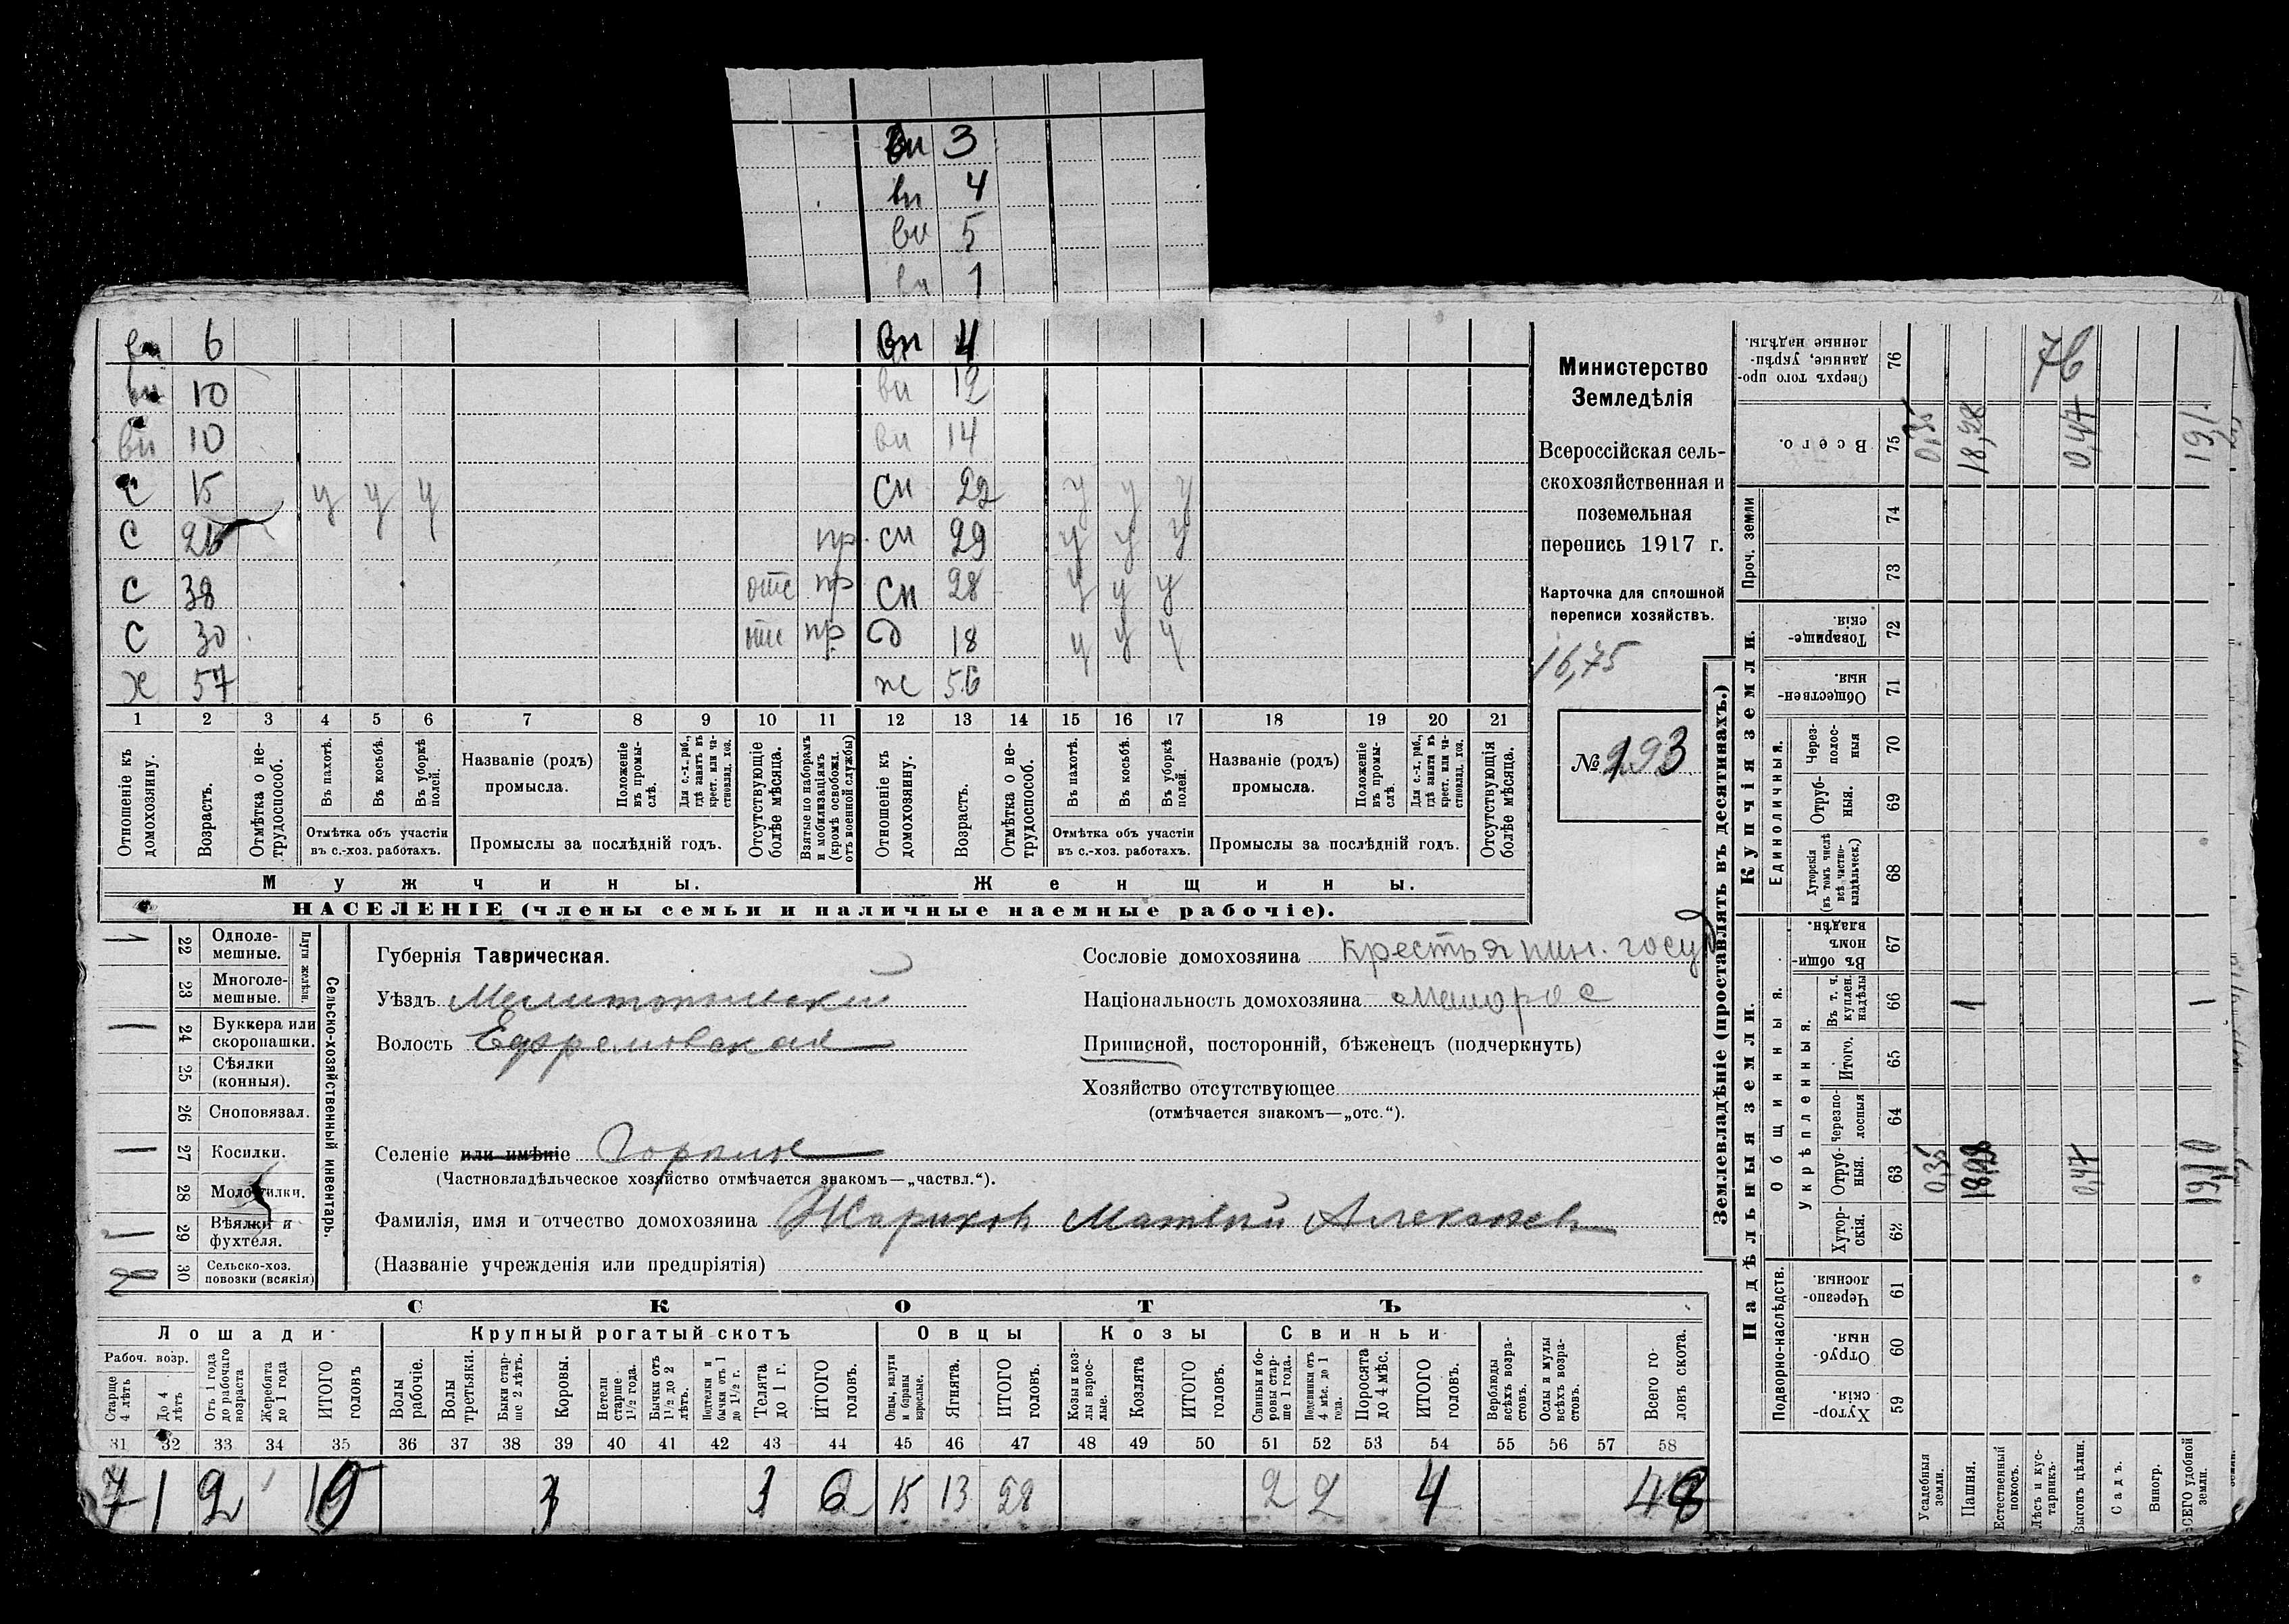 вн 3
вн 4
вн 5
вн 1
вн 6 вн 4
вн 10 вн 12
вн 10 вн 14
С 15 у у у сн 22 у у у
С пр. сн 29 у у у
С 38 отс пр сн 28 у у у
С 30 отс пр. д 18 у у у
х 57 ж 56
1 2 3 4 5 6 7 8 9 10 11 12 13 14 15 16 17 18 19 20 21
Отношеніе къ домохозяину.
Возрастъ.
Отмѣтка о нетрудоспособ.
Въ пахотѣ.
Въ косьбѣ.
Въ уборкѣ полей.
Отмѣтка объ участіи
въ с.-хоз. работахъ.
Названіе (родъ)
промысла.
Положеніе въ промыслѣ.
Для с.-х. раб., гдѣ занятъ въ крест. или частновлад. хоз.
Промыслы за послѣдній годъ.
Отсутствующіе болѣе мѣсяца.
Взятые по наборамъ и мобилизаціямъ (кромѣ освобожд. отъ военной службы)
Отношеніе къ домохозяину.
Возрастъ.
Отмѣтка о нетрудоспособ.
Въ пахотѣ.
Въ косьбѣ.
Въ уборкѣ полей.
Отмѣтка объ участіи
въ с.-хоз. работахъ.
Названіе (родъ)
промысла.
Положеніе въ промыслѣ.
Для с.-х. раб., гдѣ занята въ крест. или частновлад. хоз.
Промыслы за послѣдній годъ.
Отсутствующія болѣе мѣсяца.
Мужчины. Женщины.
НАСЕЛЕНІЕ (члены семьи и наличные наемные рабочіе).
Министерство
Земледѣлія
Всероссійская сель-
скохозяйственная и
поземельная
перепись 1917 г.
Карточка для сплошной
переписи хозяйствъ.
16,75
№ 193
1 22 Однолемешные.
23 Многолемешные.
Плуги желѣзн.
1 24 Буккера или скоропашки.
25 Сѣялки (конныя).
26 Сноповязал.
1 27 Косилки.
28 Молотилки.
1 29 Вѣялки и фухтеля.
2 30 Сельско-хоз. повозки (всякія)
Сельско-хозяйственный инвентарь.
Губернія Таврическая.
Уѣздъ Мелитопольскій
Волость Ефремовская
Селеніе или имѣніе Горькое
(Частновладѣльческое хозяйство отмѣчается знакомъ—„частвл.“).
Фамилія, имя и отчество домохозяина Жариковъ Матвѣй Алексѣев
(Названіе учрежденія или предпріятія)
Сословіе домохозяина крестьянин. госуд
Національность домохозяина малорос
Приписной, посторонній, бѣженецъ (подчеркнуть)
Хозяйство отсутствующее
(отмѣчается знакомъ—„отс.“).
СКОТЪ
Лошади Крупный рогатый скотъ Овцы Козы Свиньи
Рабоч. возр.
Старше 4 лѣтъ
До 4 лѣтъ
Отъ 1 года до рабочаго возраста
Жеребята до 1 года
ИТОГО головъ
Волы рабочіе.
Волы третьяки.
Быки старше 2 лѣтъ.
Коровы.
Нетели старше 1½ года.
Бычки отъ 1½ до 2 лѣтъ.
Подтелки и бычки отъ 1 до 1½ г.
Телята до 1 г.
ИТОГО головъ.
Овцы, валухи и бараны взрослые.
Ягнята.
ИТОГО головъ.
Козы и козлы взрослые.
Козлята
ИТОГО головъ.
Свиньи и боровы старше 1 года.
Подсвинки отъ 4 мѣс. до 1 года.
Поросята до 4 мѣс.
ИТОГО головъ.
Верблюды всѣхъ возрастовъ.
Ослы и мулы всѣхъ возрастовъ.
Всего головъ скота.
31 32 33 34 35 36 37 38 39 40 41 42 43 44 45 46 47 48 49 50 51 52 53 54 55 56 57 58
7 1 2 10 3 3 6 15 13 28 2 2 4 48
Землевладѣніе (проставлять въ десятинахъ.)
Надѣльныя земли.
Купчія земли.
Подворно-наслѣдств.
Общинныя.
Укрѣпленныя.
Единоличныя.
Проч. земли
Сверхъ того проданные, укрѣпленные надѣлы. 76
Всего. 75
74
73
Товарищескія. 72
Общественныя. 71
Черезполосныя 70
Отрубныя. 69
Хуторскія (въ томъ числѣ всѣ частновладѣльческ.) 68
Въ общинномъ владѣн. 67
Въ т. ч. куплен. надѣлы 66
Итого. 65
Черезполосныя 64
Отрубныя. 63
Хуторскія. 62
Черезполосныя. 61
Отрубныя. 60
Хуторскія. 59
Усадебныя земли.
Пашня.
Естественный покосъ.
Лѣсъ и кустарникъ.
Выгонъ цѣлин.
Садъ.
Виногр.
ВСЕГО удобной земли.
76
0,35 18,28 0,47 19,1
1 1
0,35 18,28 0,47 19,10